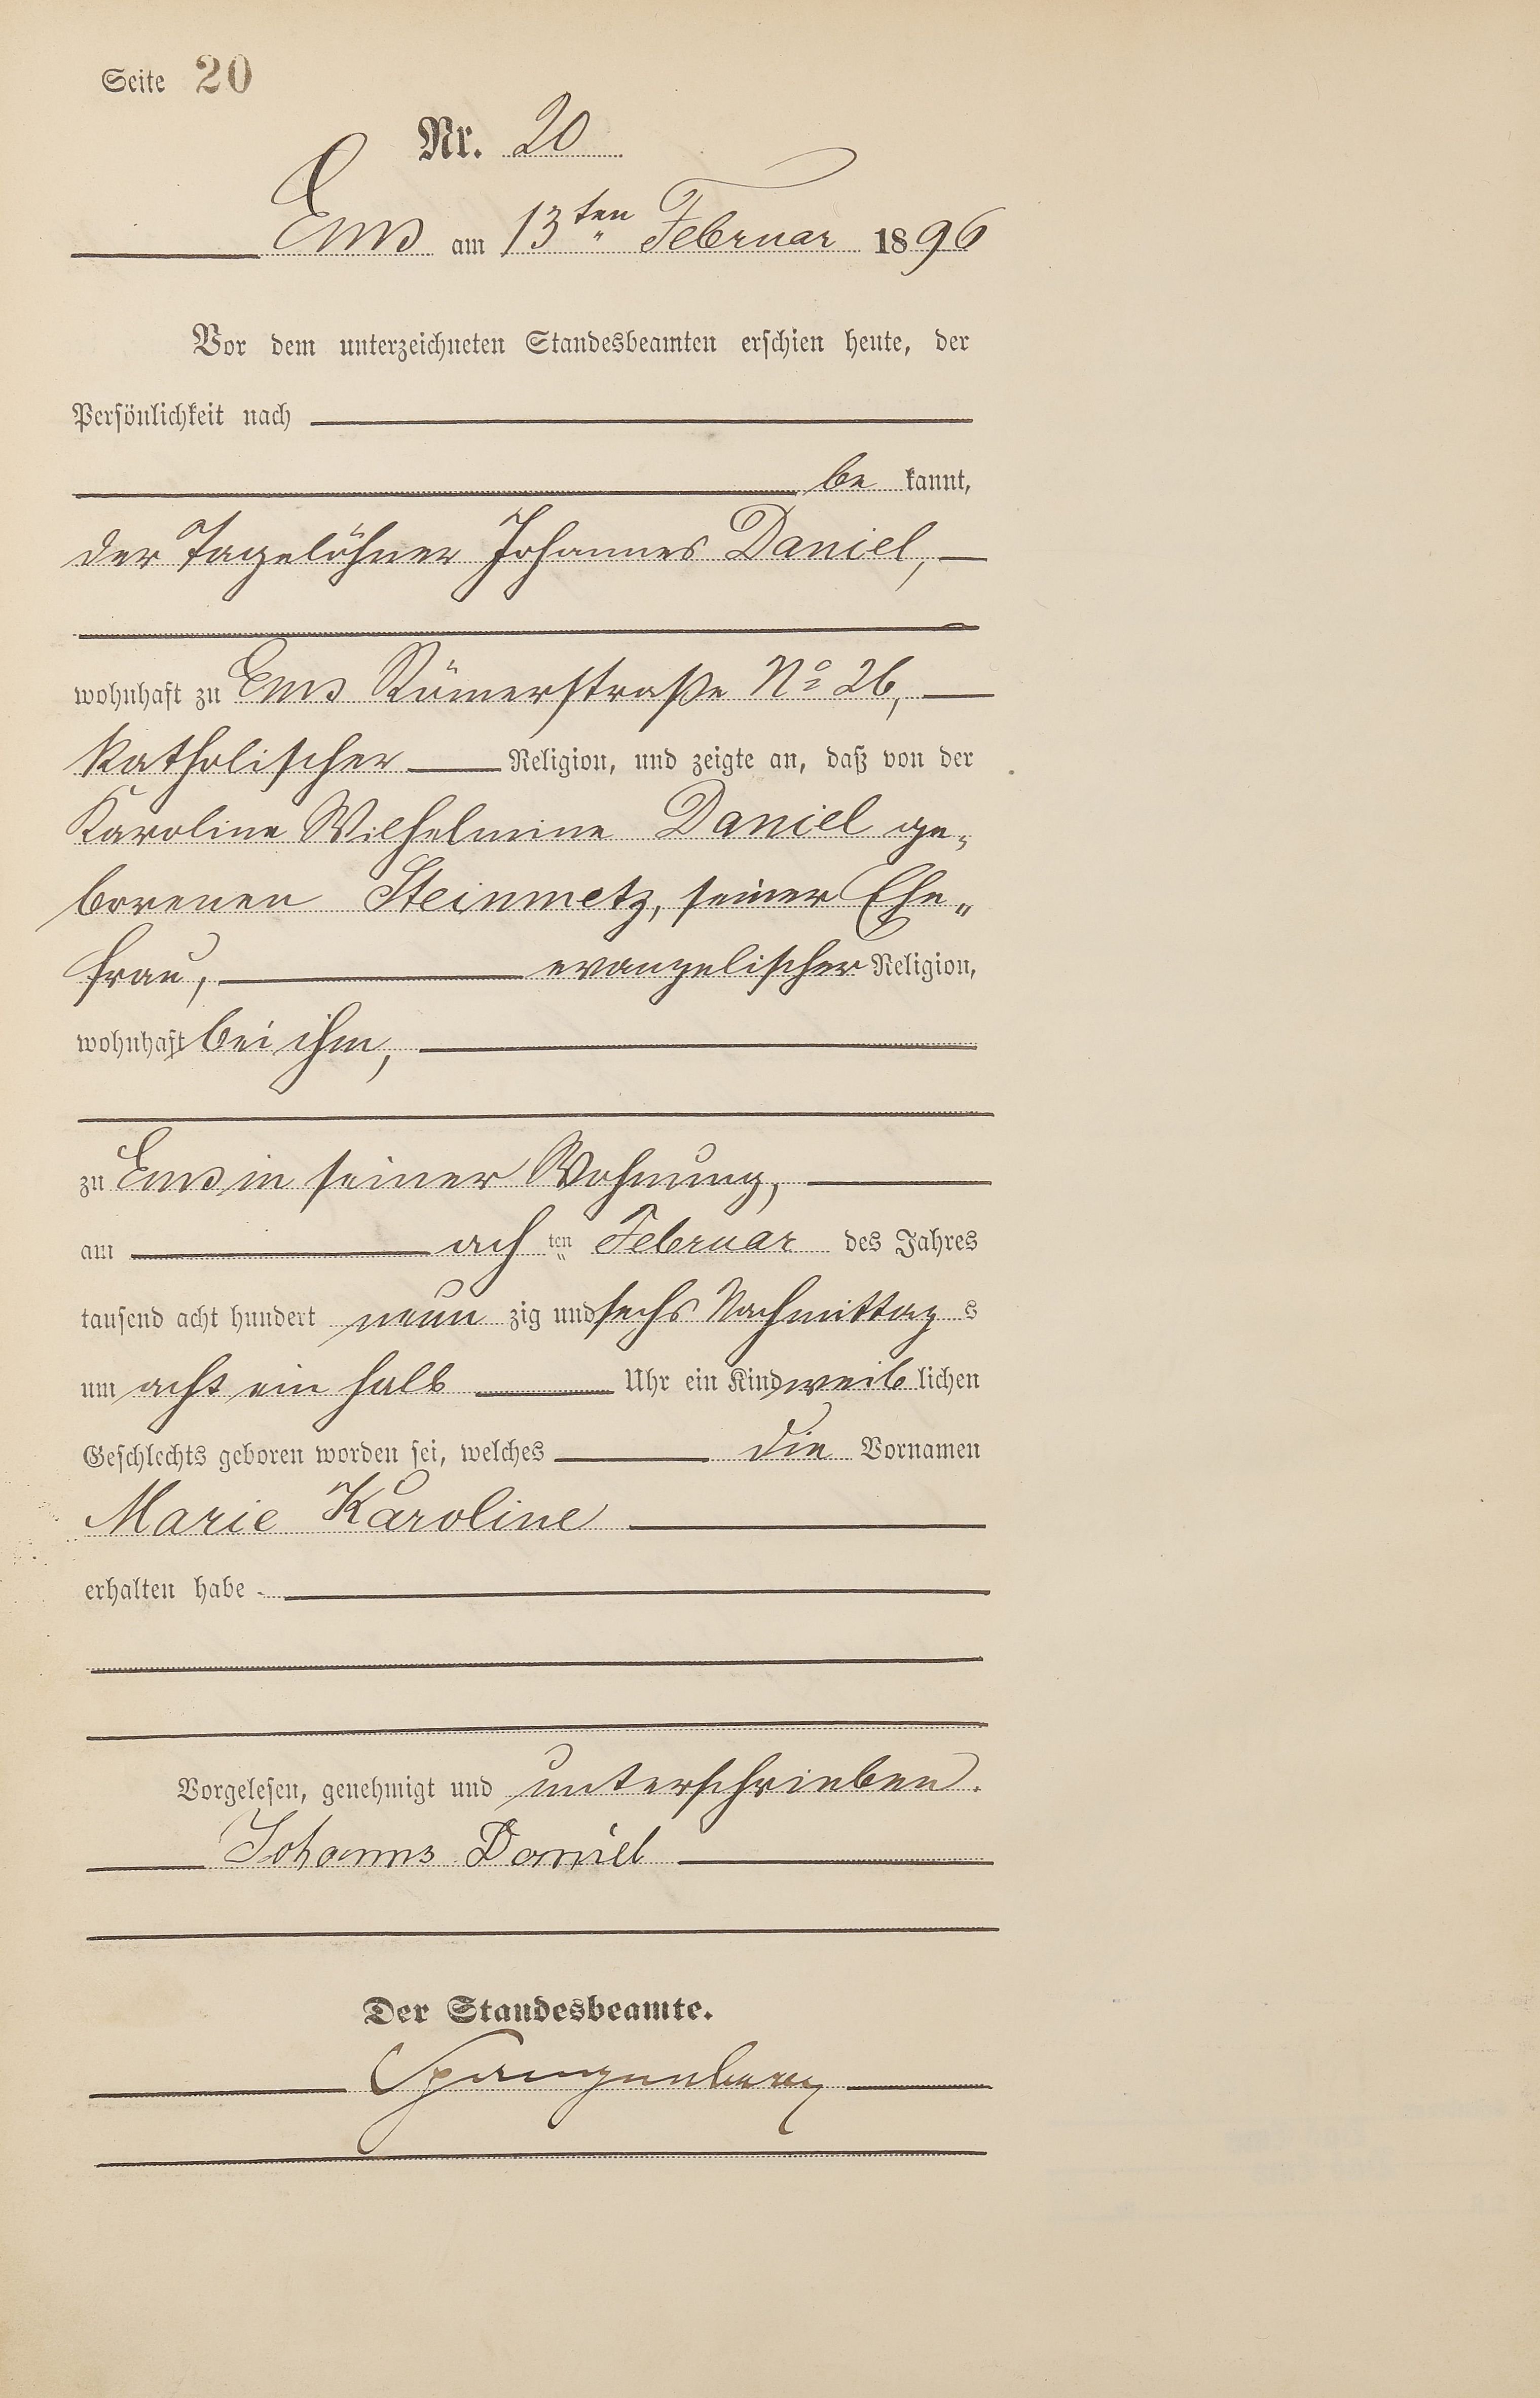 Seite 20
Nr. 20
Ems am 13ten Februar 1896
Vor dem unterzeichneten Standesbeamten erschien heute, der
Persönlichkeit nach
be kannt,
der Tagelöhner Johannes Daniel,
wohnhaft zu Ems Römerstraße No 26,
katholischer Religion, und zeigte an, daß von der
Karoline Wilhelmine Daniel ge-
borenen Steinmetz, seiner Ehe-
frau, evangelischer Religion,
wohnhaft bei ihm,
zu Ems in seiner Wohnung,
am ach ten Februar des Jahres
tausend acht hundert neun zig und sechs Nachmittag s
um acht ein halb Uhr ein Kind weib lichen
Geschlechts geboren worden sei, welches die Vornamen
Marie Karoline
erhalten habe
Vorgelesen, genehmigt und unterschrieben.
Johanns Daniel
Der Standesbeamte.
Spangenberg